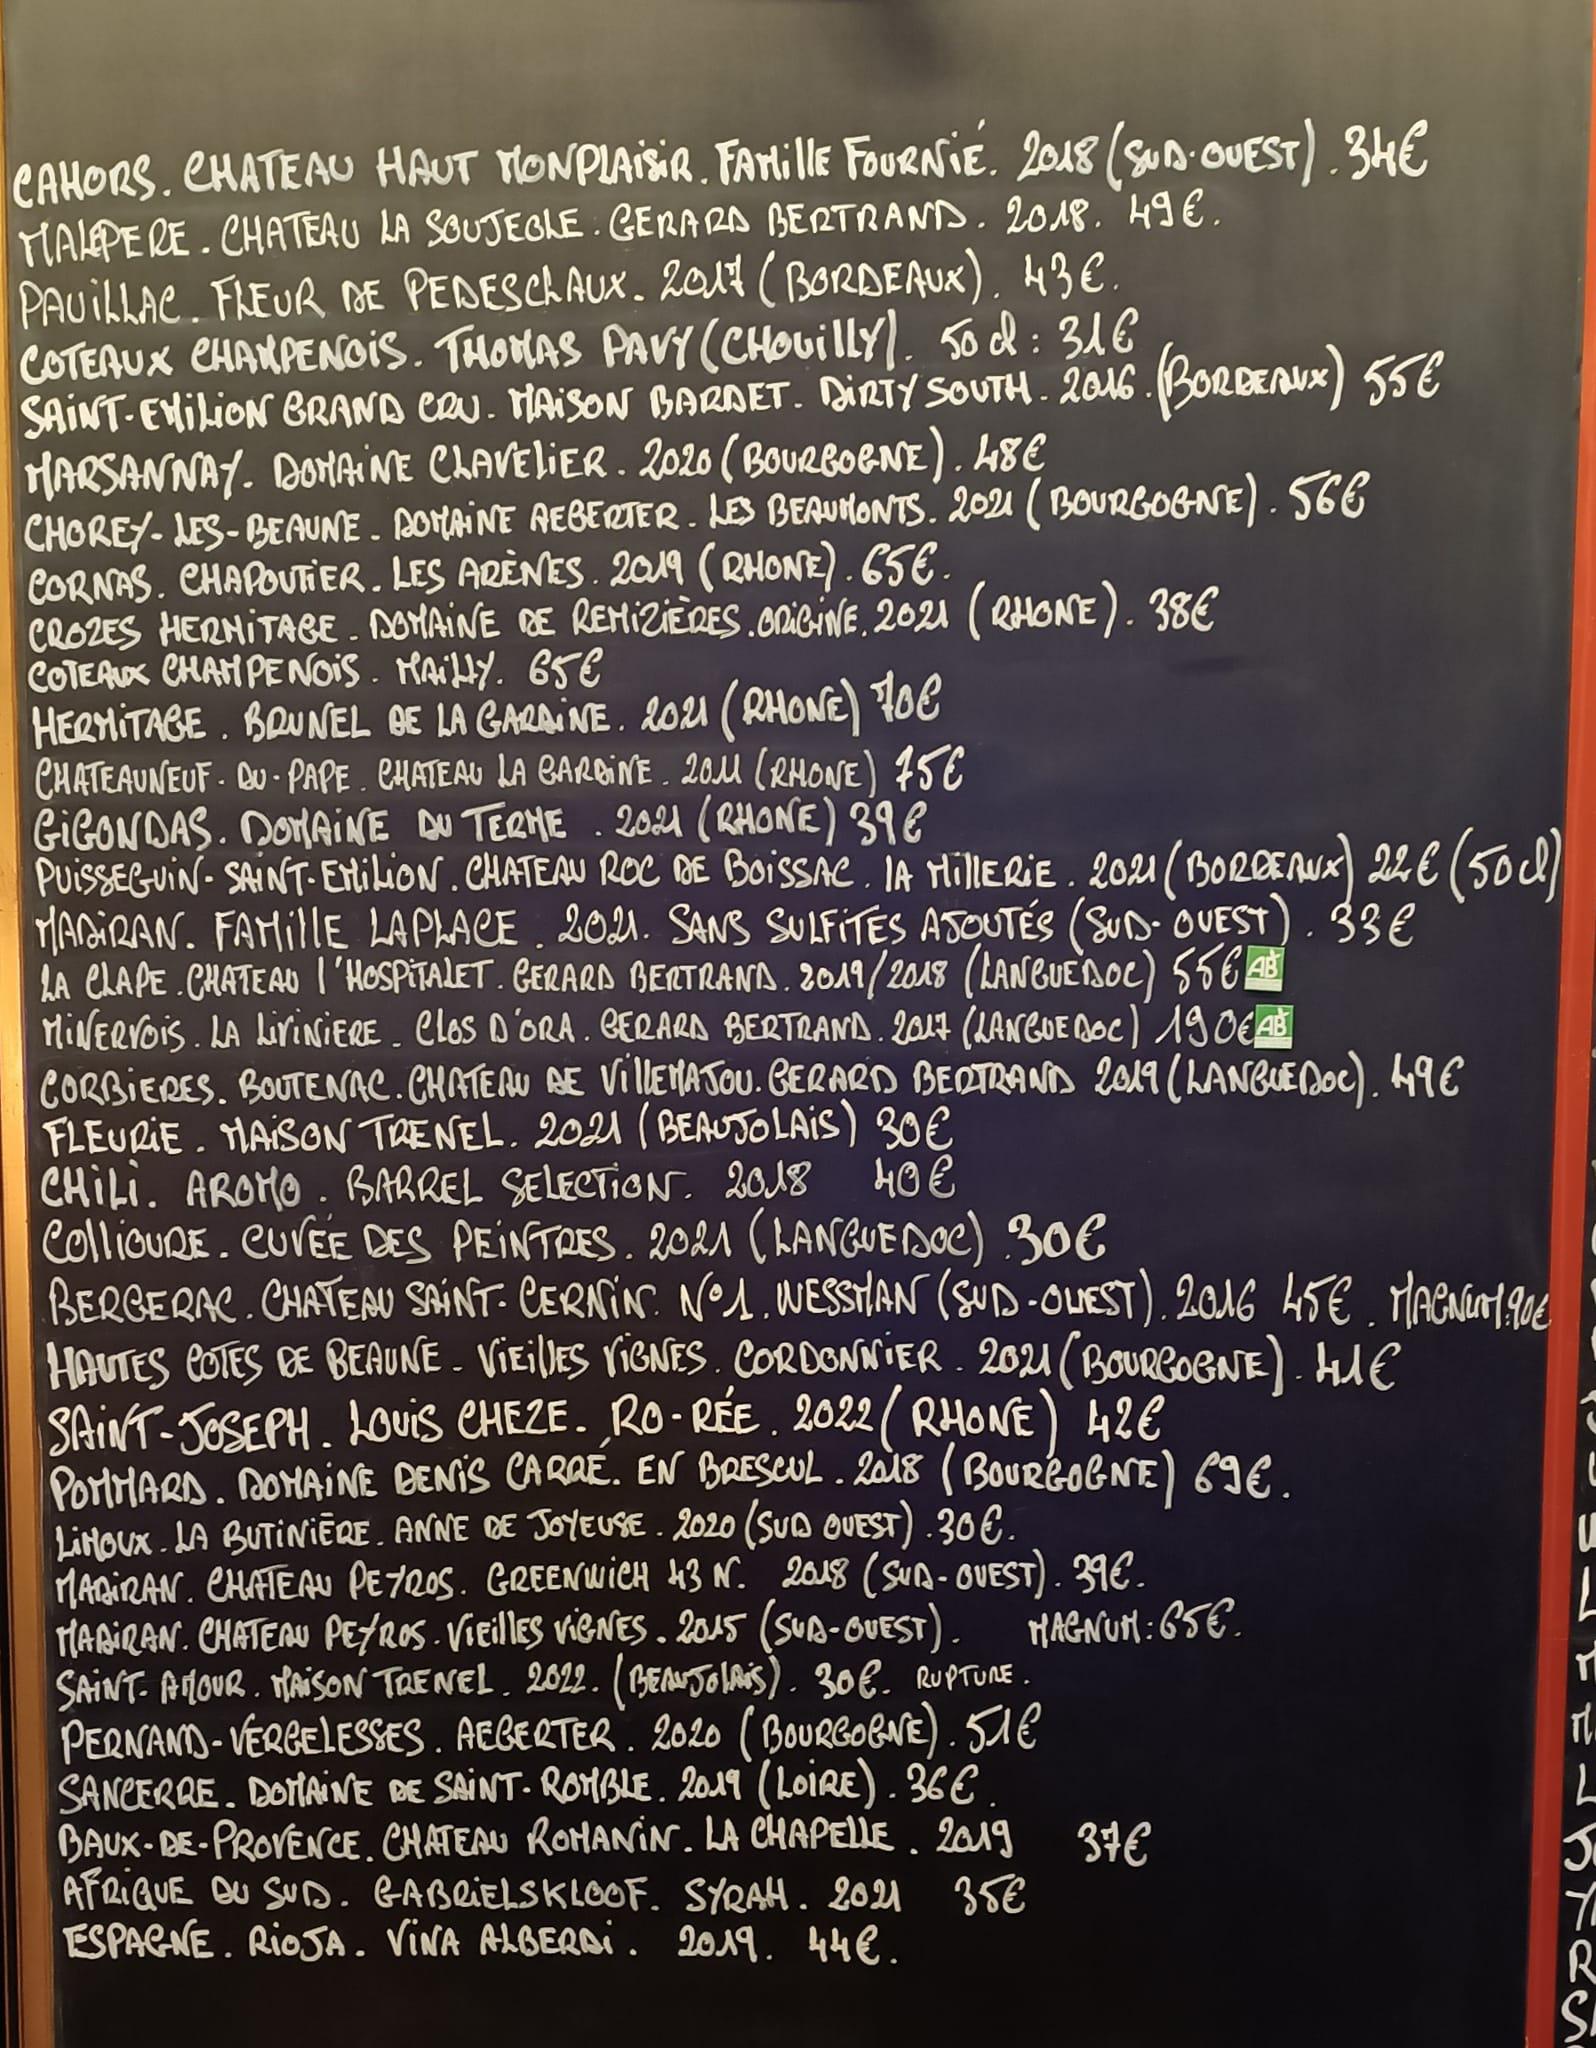 CAHORS. CHATEAU HAUT MONPLAISIR. FAMILLE FOURNIÉ. 2018 (SUD-OUEST). 34€
MALEPERE. CHATEAU LA SOUJEOLE. GERARD BERTRAND. 2018. 49€.
PAUILLAC. FLEUR DE PEDESCLAUX. 2017 (BORDEAUX). 43€.
COTEAUX CHAMPENOIS. THOMAS PAVY (CHOUILLY). 50 cl : 31€
SAINT-EMILION GRAND CRU. MAISON BARDET. DIRTY SOUTH. 2016. (BORDEAUX) 55€
MARSANNAY. DOMAINE CLAVELIER. 2020 (BOURGOGNE). 48€
CHOREY-LES-BEAUNE. DOMAINE AEGERTER. LES BEAUMONTS. 2021 (BOURGOGNE). 56€
CORNAS. CHAPOUTIER. LES ARÈNES. 2019 (RHONE). 65€.
CROZES HERMITAGE. DOMAINE DE REMIZIÈRES. ORIGINE. 2021 (RHONE). 38€
COTEAUX CHAMPENOIS. MAILLY. 65€
HERMITAGE. BRUNEL DE LA GARDINE. 2021 (RHONE) 70€
CHATEAUNEUF-DU-PAPE. CHATEAU LA GARDINE. 2011 (RHONE) 75€
GIGONDAS. DOMAINE DU TERME. 2021 (RHONE) 39€
PUISSEGUIN-SAINT-EMILION. CHATEAU ROC DE BOISSAC. LA MILLERIE. 2021 (BORDEAUX) 22€ (50 cl)
MADIRAN. FAMILLE LAPLACE. 2021. SANS SULFITES AJOUTÉS (SUD-OUEST). 33€
LA CLAPE. CHATEAU L'HOSPITALET. GERARD BERTRAND. 2019/2018 (LANGUEDOC) 55€ AB
MINERVOIS. LA LIVINIERE. CLOS D'ORA. GERARD BERTRAND. 2017 (LANGUEDOC) 190€ AB
CORBIERES. BOUTENAC. CHATEAU DE VILLEMAJOU. GERARD BERTRAND 2019 (LANGUEDOC). 49€
FLEURIE. MAISON TRENEL. 2021 (BEAUJOLAIS) 30€
CHILI. AROMO. BARREL SELECTION. 2018 40€
COLLIOURE. CUVÉE DES PEINTRES. 2021 (LANGUEDOC) .30€
BERGERAC. CHATEAU SAINT-CERNIN. N°1. WESSMAN (SUD-OUEST). 2016 45€. MAGNUM:90€
HAUTES COTES DE BEAUNE. VIEILLES VIGNES. CORDONNIER. 2021 (BOURGOGNE). 41€
SAINT-JOSEPH. LOUIS CHEZE. RO-RÉE. 2022 (RHONE) 42€
POMMARD. DOMAINE DENIS CARRÉ. EN BRESCUL. 2018 (BOURGOGNE) 69€.
LIMOUX. LA BUTINIÈRE. ANNE DE JOYEUSE. 2020 (SUD OUEST). 30€.
MADIRAN. CHATEAU PEYROS. GREENWICH 43 N. 2018 (SUD-OUEST). 39€.
MADIRAN. CHATEAU PEYROS. VIEILLES VIGNES. 2015 (SUD-OUEST). MAGNUM: 65€.
SAINT-AMOUR. MAISON TRENEL. 2022. (BEAUJOLAIS). 30€. RUPTURE.
PERNAND-VERGELESSES. AEGERTER. 2020 (BOURGOGNE). 51€
SANCERRE. DOMAINE DE SAINT-ROMBLE. 2019 (LOIRE). 36€.
BAUX-DE-PROVENCE. CHATEAU ROMANIN. LA CHAPELLE. 2019 37€
AFRIQUE DU SUD. GABRIELSKLOOF. SYRAH. 2021 35€
ESPAGNE. RIOJA. VINA ALBERDI. 2019. 44€.